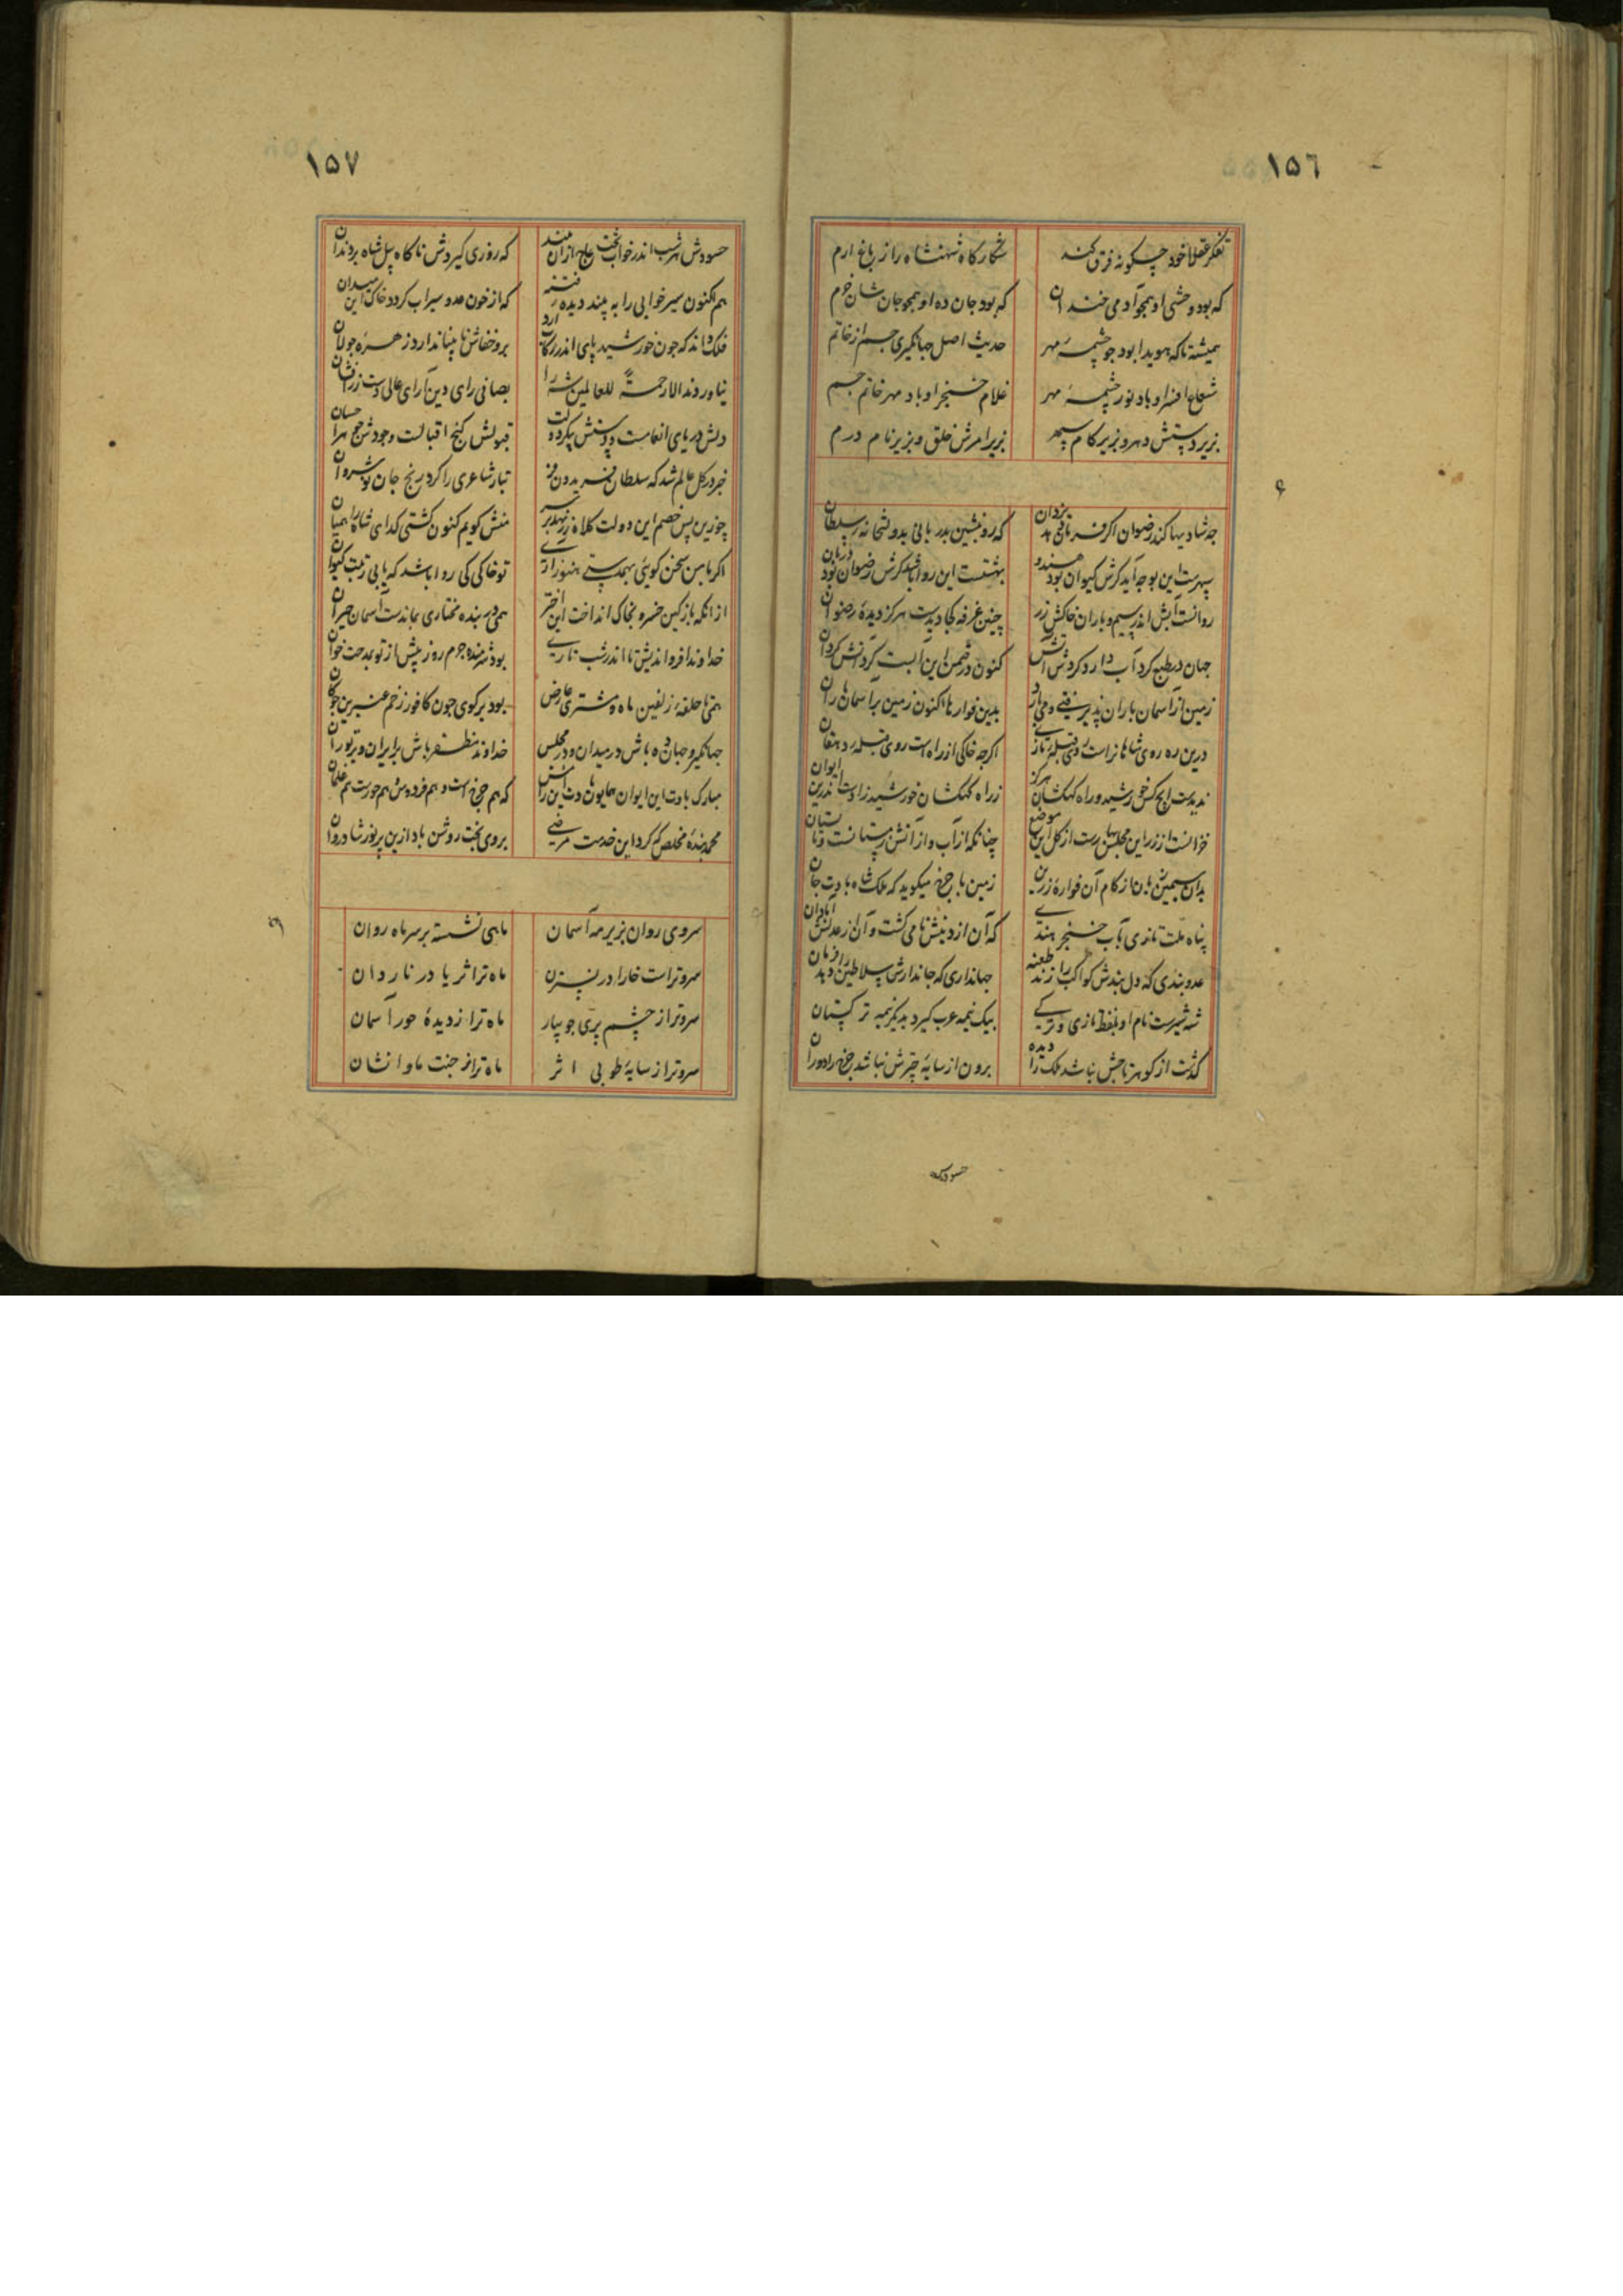 ١٥٦
تفکر عقلا خود چگونه فرق کند
شکارگاه شهنشاه را ز باغ ارم
که بود وحشی او همچو آدمی خندان
که بود جان ده او همچو جان شان خرم
همیشه تا که هویدا بود چو چشمه مهر
حدیث اصل جهانگیری جم از خاتم
شعاع افسر او باد نور چشمهٔ مهر
غلام خنجر او باد مهر خاتم جم
بزیر دستش دهر و بزیر کام سپهر
بزیر امرش خلق و بزیر نام درم
چه شادیها کند رضوان اگر فرمان دهد یزدان
که رو بنشین بدربانی بدولتخانه سلطان
سپهرست این بوجه آید گرش کیوان بود هندو
بهشتست این روا باشد گرش رضوان بود دربان
روانست آبش اندر سیم و باران خاکش زر
چنین غرفه کجا دیدست هرگز دیدهٔ رضوان
جهان در طبع گرد آب دارد گردش آتش
کنون در ضمن این آبست گردانش گردان
زمین از آسمان باران پذیرفتی و می بارد
بدین فوارها اکنون زمین بر آسمان باران
درین ره روی شاهانراست روی قبله تازی
اگرچه خاکی از راه است روی قبله دهقان
ندیدست ایچ کس خورشید و راه کهکشان هرگز
ز راه کهکشان خورشید زادست اندرین ایوان
خزانست از زر این مجلس بهارست از گل این موضع
چنانکه از آب و از آتش زمستانست و تابستان
بدان سیمین زبان از کام آن فوارهٔ زرین
زمین با چرخ میگوید که ملک شاه بادت جان
پناه ملت تازی بآب خنجر هندی
که آن از دینش نامی گشت و آن از عدلش آبادان
عدو بندی که دل بندش کواکب را زند طعنه
جهانداری که جاندارش سلاطین را دهد فرمان
شه شیرست نام او بلفظ تازی و ترکی
بیک نیمه عرب گیرد بدیگر نیمه ترکستان
گذشت از گوهر تاجش نباشد ملک را دیده
برون از سایهٔ چترش نباشد چرخ را دوران
حسودش
١٥٧
حسودش هر شب اندر خواب تخت عاج ازان بیند
که روزی گیردش ناگاه پیل شاه بر دندان
هم اکنون سیر خوابی را به بیند دیده فتنه
که از خون عدو سیراب گردد خاک این میدان
فلک داند که چون خورشید پای اندر رکاب آرد
برو خفاش نابینا ندارد زهره جولان
نیاوردند الا رحمة للعالمین شه را
بصافی رای دین آرای عالی دست زرافشان
دلش دریای انعامست و دستش پیکر دولت
قبولش گنج اقبالست وجودش حج احسان
خبر در کل عالم شد که سلطان فریدون فر
تبار شاعری را کرد رنج جان نوشروان
چو زین پس خصم این دولت کلاه زر نهد بر سر
منش گویم کنون کشتی گدای شاه را همیان
اگر با من سخن گوئی بهمت پستی هنوز ارنی
تو خاکی کی روا باشد که یابی رتبت کیوان
از انکه باز کین خسرو بخاک انداخت این اختر
همی در بنده مختاری بماندست آسمان حیران
خداوندا فرو اندیش تا اندر شب تاری
بود شرمنده جرم روز پیش از تو بمدحت خوان
همی تا حلقه زلفین ماه و مشتری عارض
بود بر گوی چون کافور زخم عنبرین چوگان
جهانگیر و جهان ده باش در میدان و در مجلس
خداوند مظفر باش بر ایران و بر توران
مبارک بادت این ایوان همایون بادت این رامش
که هم چرخ است و هم فردوس هم حورست هم غلمان
محمد بندهٔ مخلص که کرد این خدمت مرضی
بروی بخت روشن باد ازین پر نور شادروان
سروی روان بزیر مه آسمان
ماهی نشسته بر سرماه روان
سرو تراست خارا در نسترن
ماه ترا ثریا در ناردان
سرو تر از چشم پری جویبار
ماه ترا ز دیدهٔ حور آسمان
سرو ترا ز سایهٔ طوبی اثر
ماه ترا ز جنت ماوا نشان